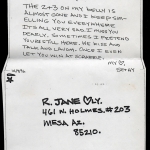 THE 2+3 ON MY BELLY IS
ALMOST GONE AND I KEEP SMELLING YOU EVERYWHERE
IT'S ALL VERY SAD. I MISS YOU
DEARLY. SOMETIMES I PRETEND
YOU'RE STILL HERE. WE KISS AND
TALK AND LAUGH. ONCE I EVEN
LET YOU WIN AT SCRABBLE.
MY ♡,
R. JANE ♡LY.
461 N. HOLMES. #203
MESA AZ.
85210.